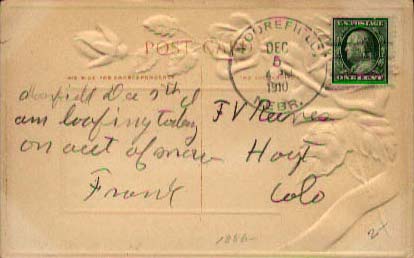 POST CARD
MOOREFIELD
DEC
5
1910
NEBR.
U.S. POSTAGE
ONE CENT
THIS SIDE FOR CORRESPONDENCE
Moorefield Dec 5th I
am loafing today
on acct of snow
Frank
F V Reeves
Hoyt
Colo
1886-